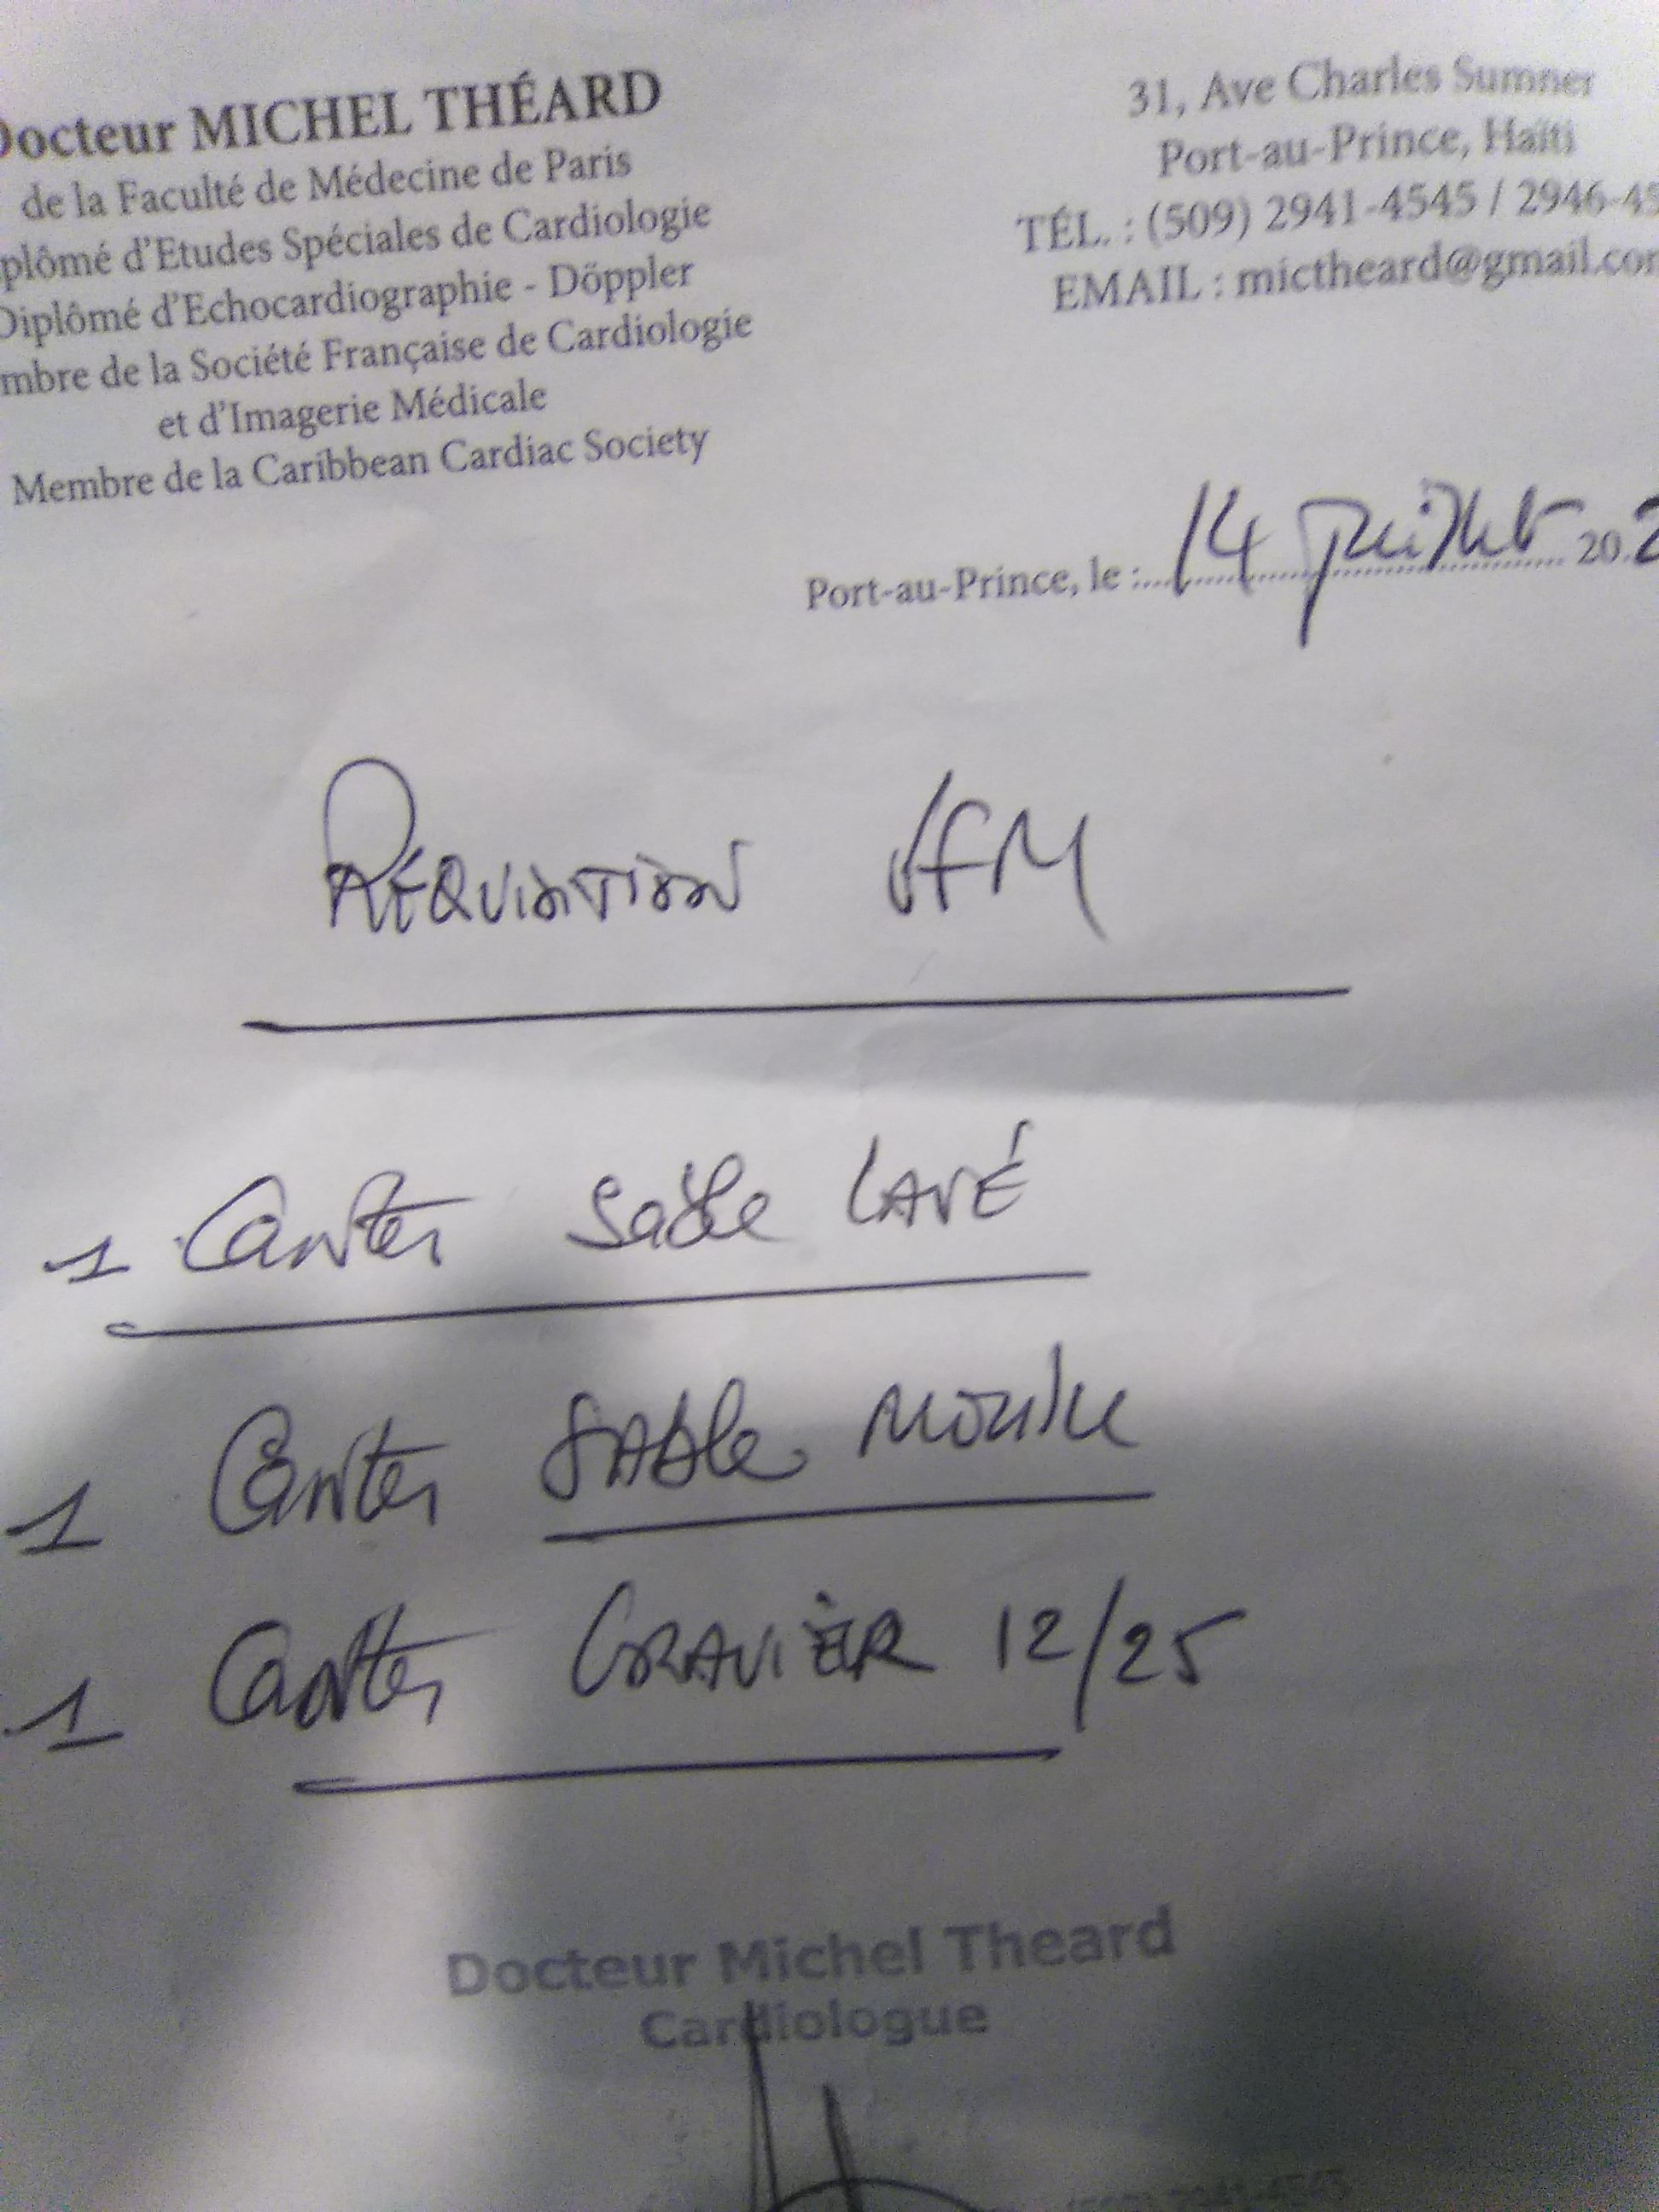 Docteur MICHEL THÉARD
de la Faculté de Médecine de Paris
plômé d'Etudes Spéciales de Cardiologie
Diplômé d'Echocardiographie - Döppler
mbre de la Société Française de Cardiologie
et d'Imagerie Médicale
Membre de la Caribbean Cardiac Society
31, Ave Charles Sumner
Port-au-Prince, Haïti
TÉL. : (509) 2941-4545 / 2946-45
EMAIL : mictheard@gmail.com
Port-au-Prince, le : 14 juillet 202
REQUISITION
1 Sable LAVÉ
1 SABle
1 GRAVIER 12/25
Docteur Michel Theard
Cardiologue